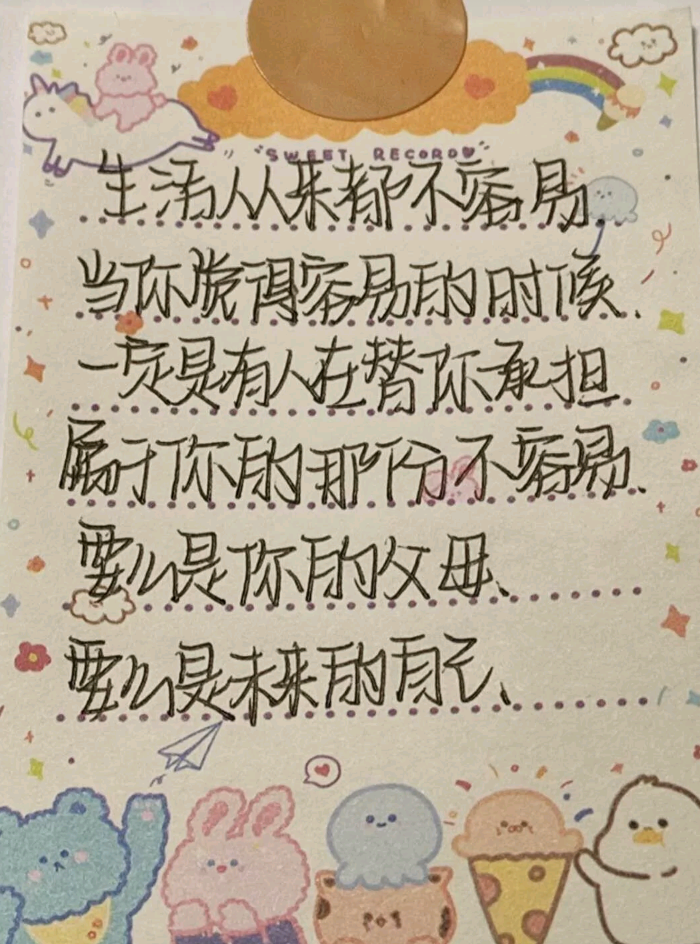 SWEET RECORD
生活从来都不容易.
当你觉得容易的时候.
一定是有人在替你承担.
属于你的那份不容易.
要么是你的父母、
要么是未来的自己、